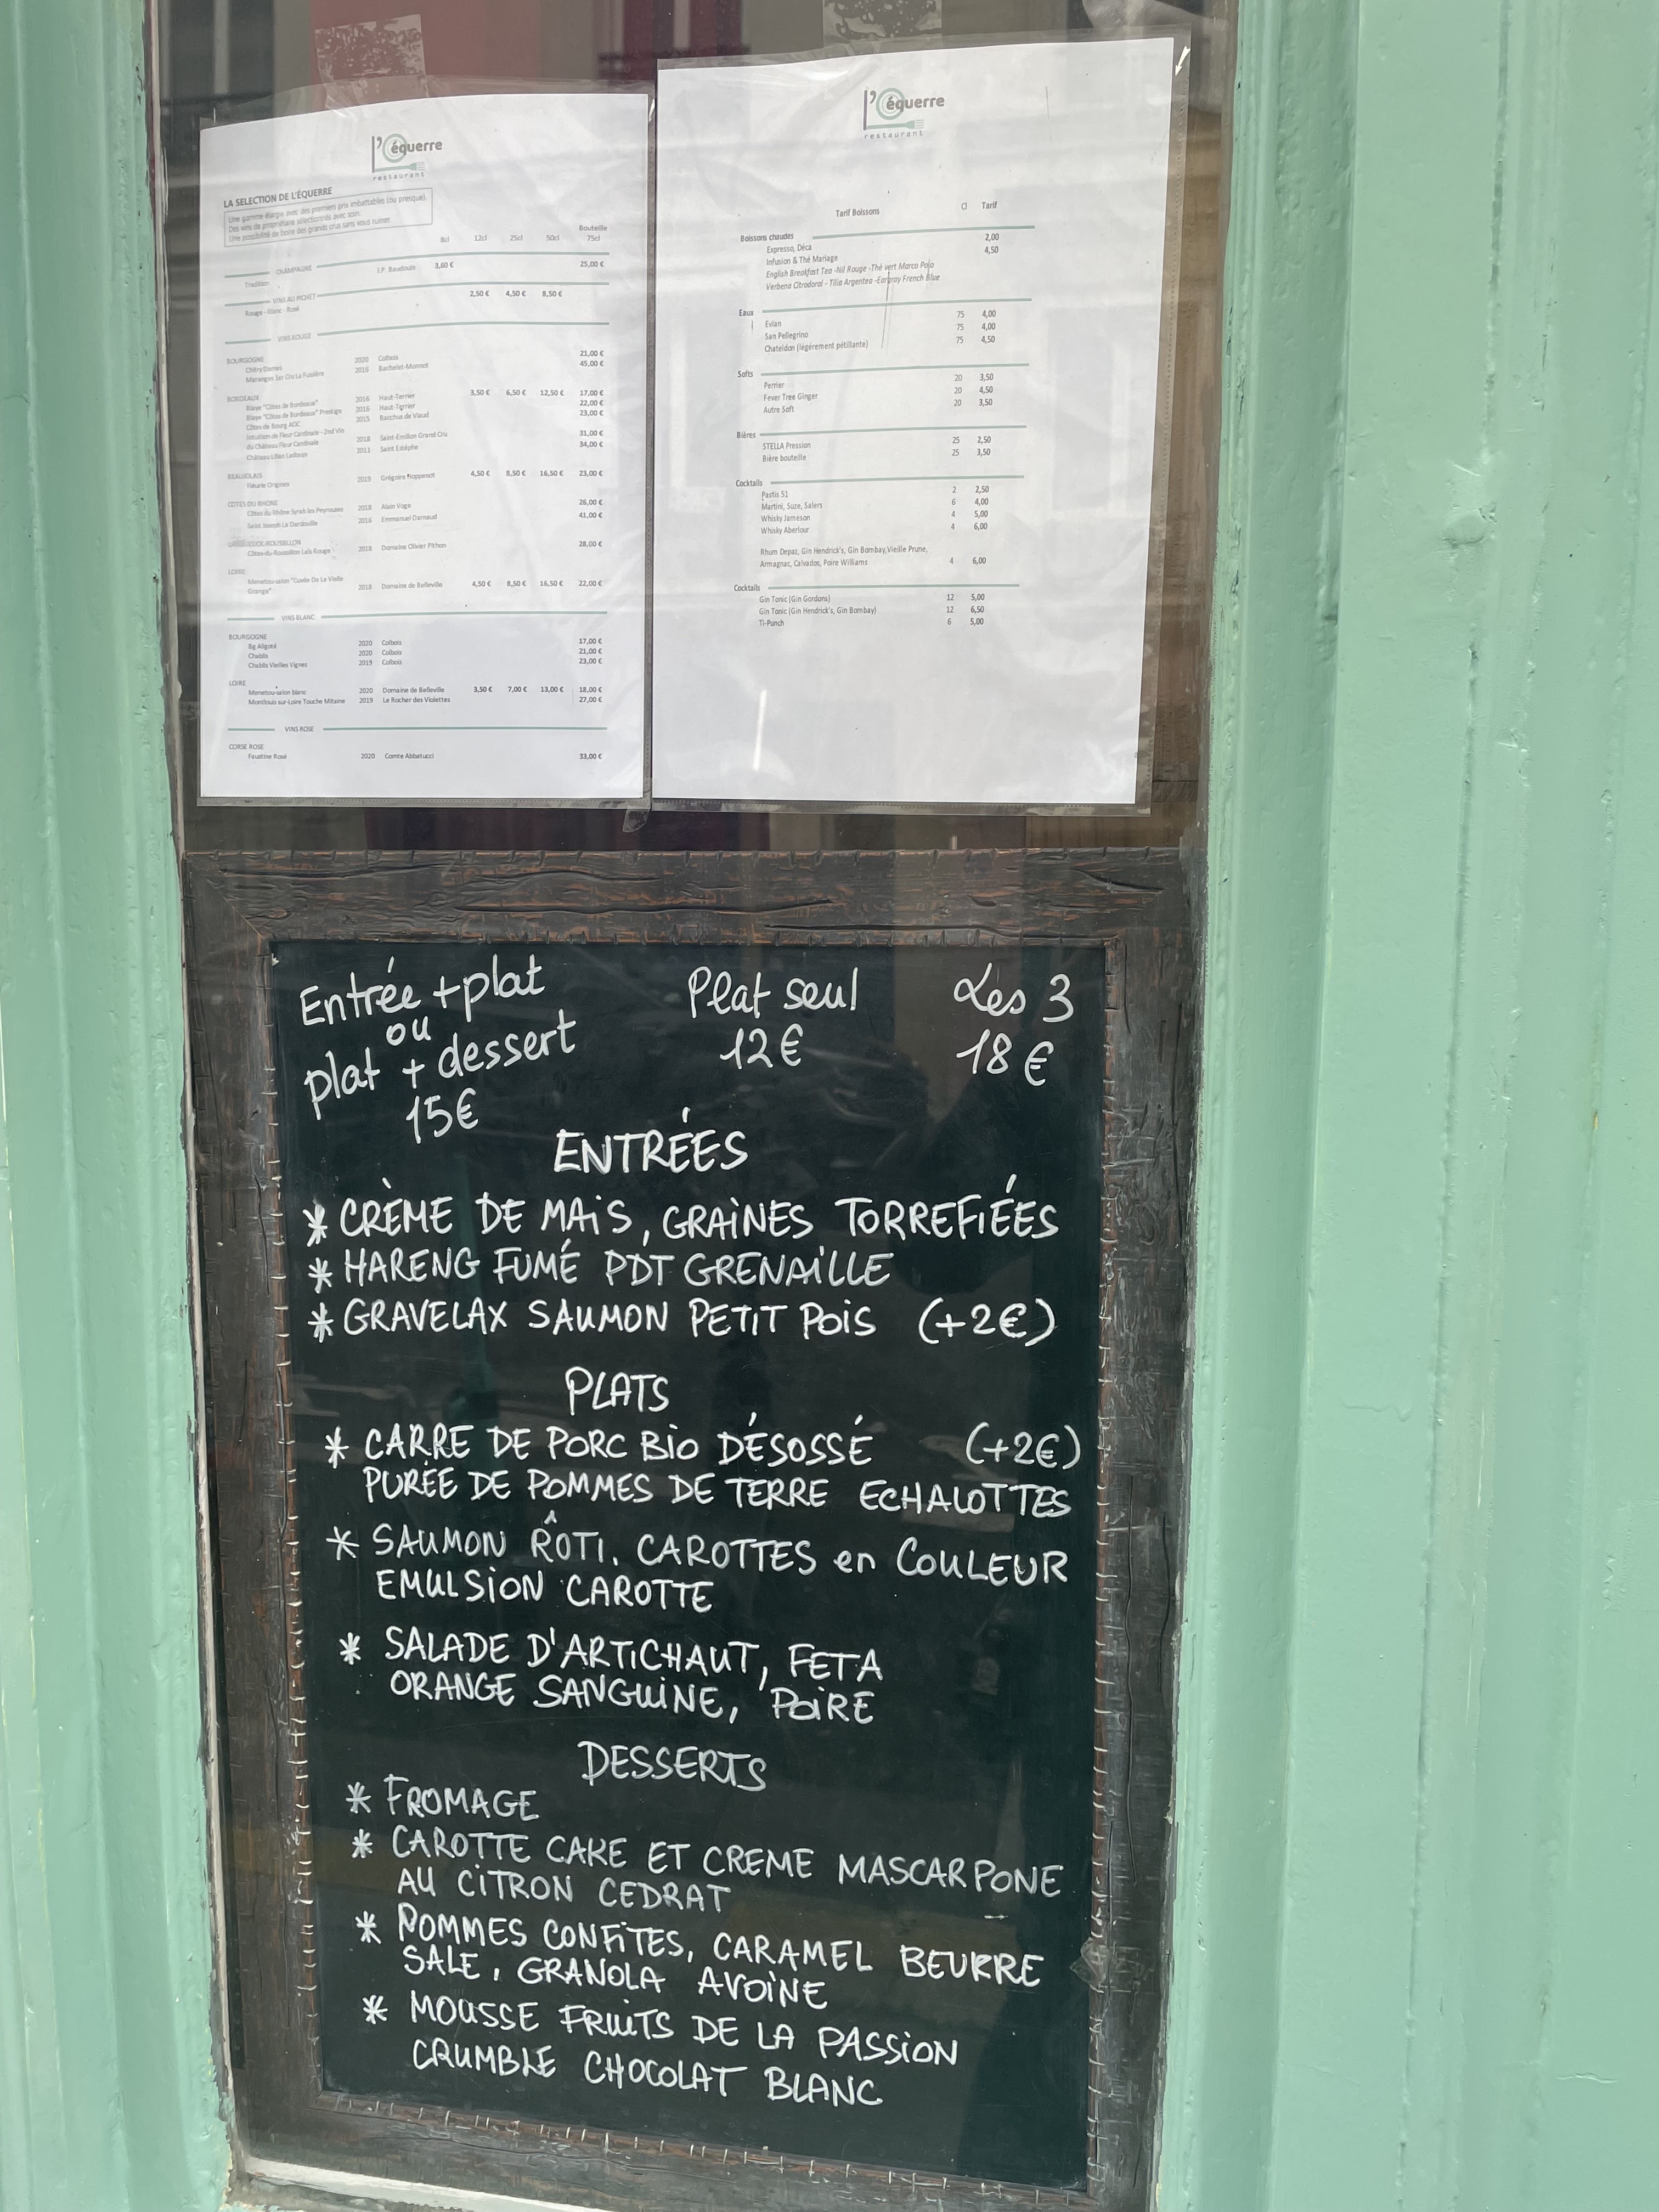 l'équerre
restaurant
LA SELECTION DE L'ÉQUERRE
Une gamme élargie avec des premiers prix imbattables (ou presque).
Des vins de propriétaire sélectionnés avec soin.
Une possibilité de boire des grands crus sans vous ruiner.
8cl 12cl 25cl 50cl Bouteille 75cl
CHAMPAGNE
Tradition E.P. Baudouin 3,60 € 25,00 €
VINS AU PICHET
Rouge - Blanc - Rosé 2,50 € 4,50 € 8,50 €
VINS ROUGE
BOURGOGNE
Chitry Dames 2020 Colbois 21,00 €
Maranges 1er Cru La Fussière 2016 Bachelet-Monnot 45,00 €
BORDEAUX
Blaye "Côtes de Bordeaux" 2016 Haut-Terrier 3,50 € 6,50 € 12,50 € 17,00 €
Blaye "Côtes de Bordeaux" Prestige 2016 Haut-Terrier 22,00 €
Côtes de Bourg AOC 2015 Bacchus de Viaud 23,00 €
Intuition de Fleur Cardinale - 2nd Vin
du Château Fleur Cardinale 2018 Saint-Emilion Grand Cru 31,00 €
Château Lilian Ladouys 2011 Saint Estèphe 34,00 €
BEAUJOLAIS
Fleurie Origines 2019 Grégoire Hoppenot 4,50 € 8,50 € 16,50 € 23,00 €
COTES DU RHONE
Côtes du Rhône Syrah les Peyrouses 2018 Alain Voge 26,00 €
Saint Joseph La Dardouille 2016 Emmanuel Darnaud 41,00 €
LANGUEDOC-ROUSSILLON
Côtes-du-Roussillon Laïs Rouge 2018 Domaine Olivier Pithon 28,00 €
LOIRE
Menetou-salon "Cuvée De La Vieille
Grange" 2018 Domaine de Belleville 4,50 € 8,50 € 16,50 € 22,00 €
VINS BLANC
BOURGOGNE
Bg Aligoté 2020 Colbois 17,00 €
Chablis 2020 Colbois 21,00 €
Chablis Vieilles Vignes 2019 Colbois 23,00 €
LOIRE
Menetou-salon blanc 2020 Domaine de Belleville 3,50 € 7,00 € 13,00 € 18,00 €
Montlouis sur-Loire Touche Mitaine 2019 Le Rocher des Violettes 27,00 €
VINS ROSE
CORSE ROSE
Faustine Rosé 2020 Comte Abbatucci 33,00 €
l'équerre
restaurant
Tarif Boissons Cl Tarif
Boissons chaudes
Expresso, Déca 2,00
Infusion & Thé Mariage 4,50
English Breakfast Tea -Nil Rouge -Thé vert Marco Polo
Verbena Citrodoral - Tilia Argentea -Eargray French Blue
Eaux
Evian 75 4,00
San Pellegrino 75 4,00
Chateldon (légèrement pétillante) 75 4,50
Softs
Perrier 20 3,50
Fever Tree Ginger 20 4,50
Autre Soft 20 3,50
Bières
STELLA Pression 25 2,50
Bière bouteille 25 3,50
Cocktails
Pastis 51 2 2,50
Martini, Suze, Salers 6 4,00
Whisky Jameson 4 5,00
Whisky Aberlour 4 6,00
Rhum Depaz, Gin Hendrick's, Gin Bombay, Vieille Prune,
Armagnac, Calvados, Poire Williams 4 6,00
Cocktails
Gin Tonic (Gin Gordons) 12 5,00
Gin Tonic (Gin Hendrick's, Gin Bombay) 12 6,50
Ti-Punch 6 5,00
Entrée + plat
ou
plat + dessert
15€
Plat seul
12€
Les 3
18€
ENTRÉES
* CRÈME DE MAIS, GRAINES TORREFIÉES
* HARENG FUMÉ PDT GRENAILLE
* GRAVELAX SAUMON PETIT POIS (+2€)
PLATS
* CARRE DE PORC BIO DÉSOSSÉ (+2€)
PURÉE DE POMMES DE TERRE ECHALOTTES
* SAUMON RÔTI, CAROTTES en COULEUR
EMULSION CAROTTE
* SALADE D'ARTICHAUT, FETA
ORANGE SANGUINE, POIRE
DESSERTS
* FROMAGE
* CAROTTE CAKE ET CREME MASCARPONE
AU CITRON CEDRAT
* POMMES CONFITES, CARAMEL BEURRE
SALE, GRANOLA AVOINE
* MOUSSE FRUITS DE LA PASSION
CRUMBLE CHOCOLAT BLANC